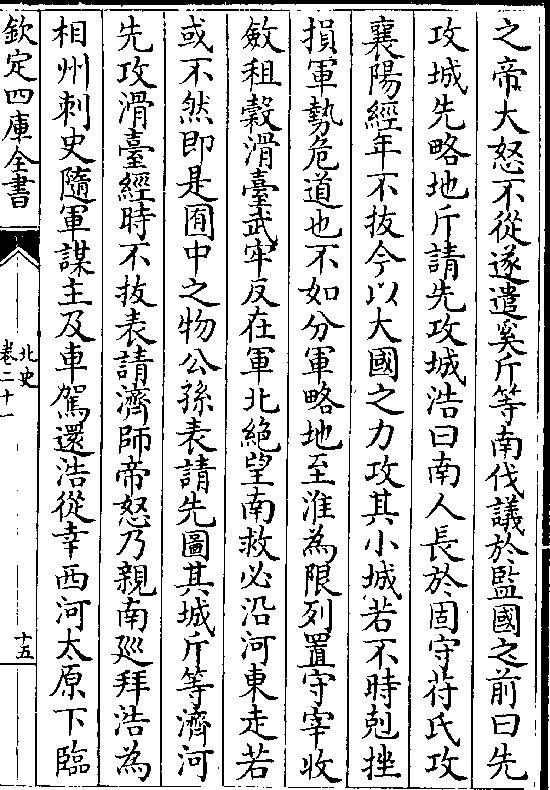 之帝大怒不從遂遣奚斤等南伐議於監國之前曰先
攻城先略地斤請先攻城浩曰南人長於固守苻氏攻
襄陽經年不拔今以大國之力攻其小城若不時剋挫
損軍勢危道也不如分軍略地至淮為限列置守宰收
斂租穀滑臺武牢反在軍北絕望南救必沿河東走若
或不然即是囿中之物公孫表請先圖其城斤等濟河
先攻滑臺經時不拔表請濟師帝怒乃親南廵拜浩為
相州刺史隨軍謀主及車駕還浩從幸西河太原下臨
欽定四庫全書
北史
卷二十一
十五